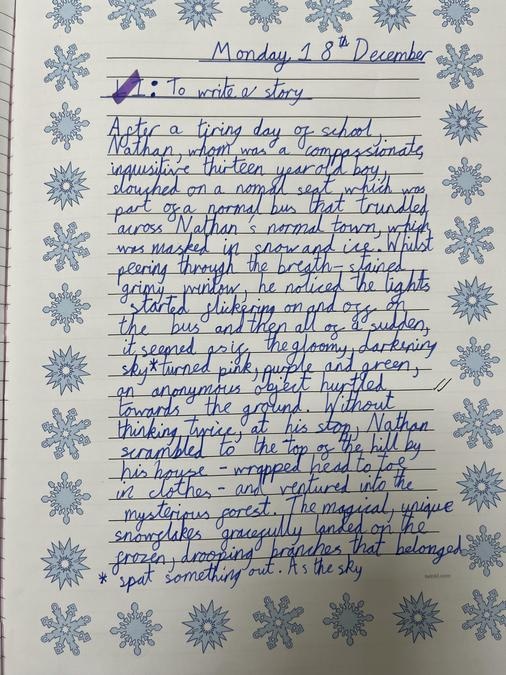 Monday 18th December
LI: To write a story
After a tiring day of school,
Nathan, whom was a compassionate,
inquisitive thirteen year old boy,
slouched on a normal seat which was
part of a normal bus that trundled
across Nathan's normal town, which
was masked in snow and ice. Whilst
peering through the breath-stained
grimy window, he noticed the lights
started flickering on and off on
the bus and then all of a sudden,
it seemed as if the gloomy, darkening
sky* turned pink, purple and green,
an anonymous object hurtled //
towards the ground. Without
thinking twice, at his stop, Nathan
scrambled to the top of the hill by
his house - wrapped head to toe
in clothes - and ventured into the
mysterious forest. The magical, unique
snowflakes gracefully landed on the
frozen, drooping branches that belonged
* spat something out. As the sky
twinkl.com